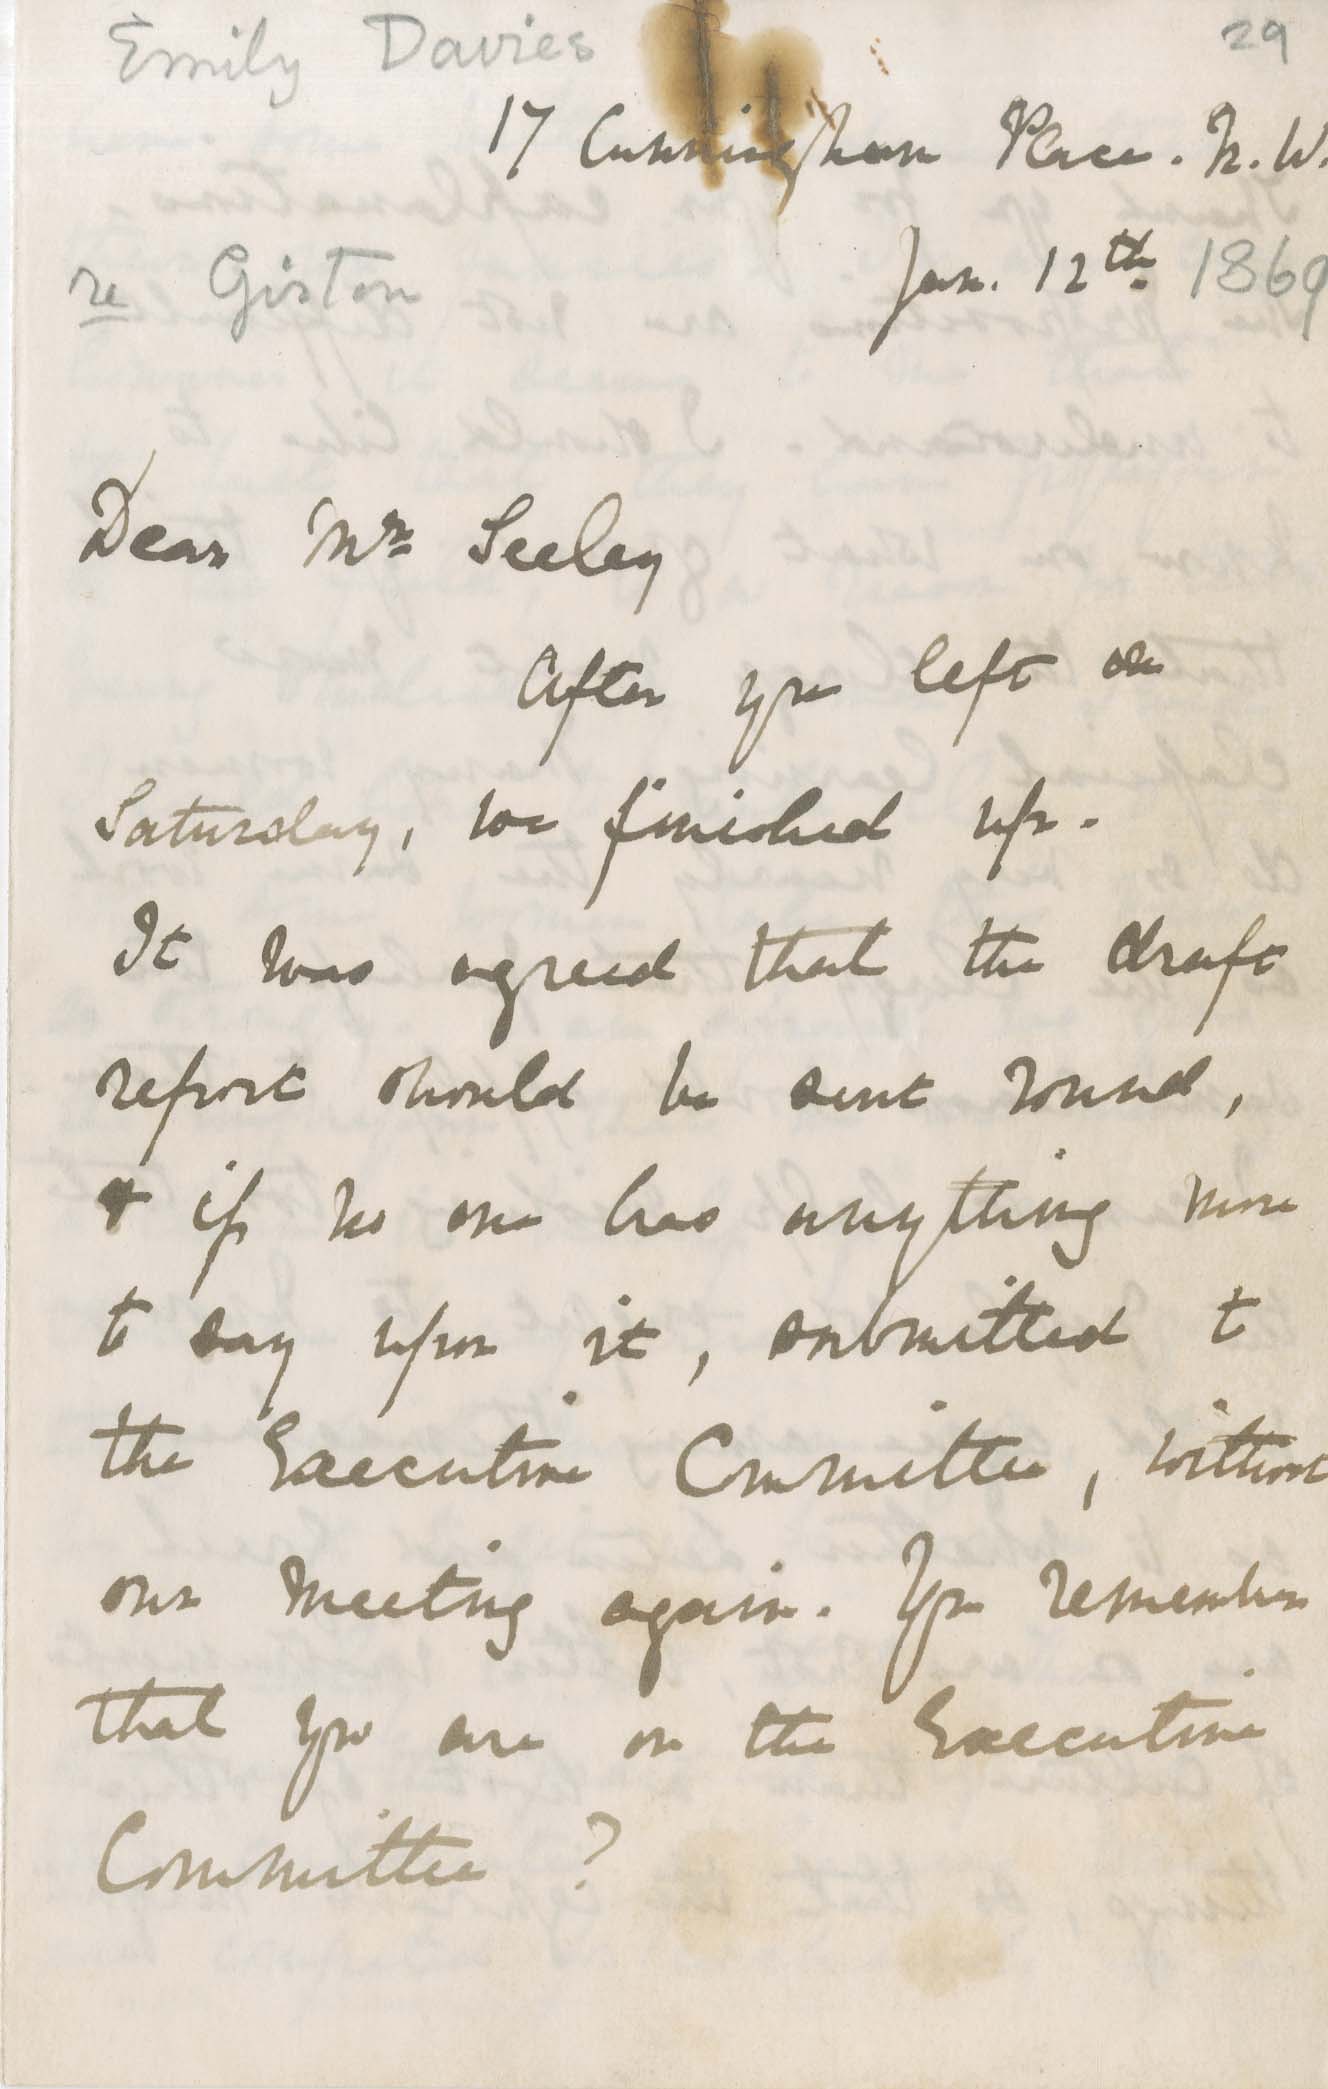 Emily Davies
29
17 Cunningham Place. N.W.
re Girton
Jan. 12th 1869
Dear Mr Seeley
After you left on
Saturday, we finished up.
It was agreed that the draft
report should be sent round,
& if no one has anything more
to say upon it, submitted to
the Executive Committee, without
our meeting again. You remember
that you are on the Executive
Committee ?